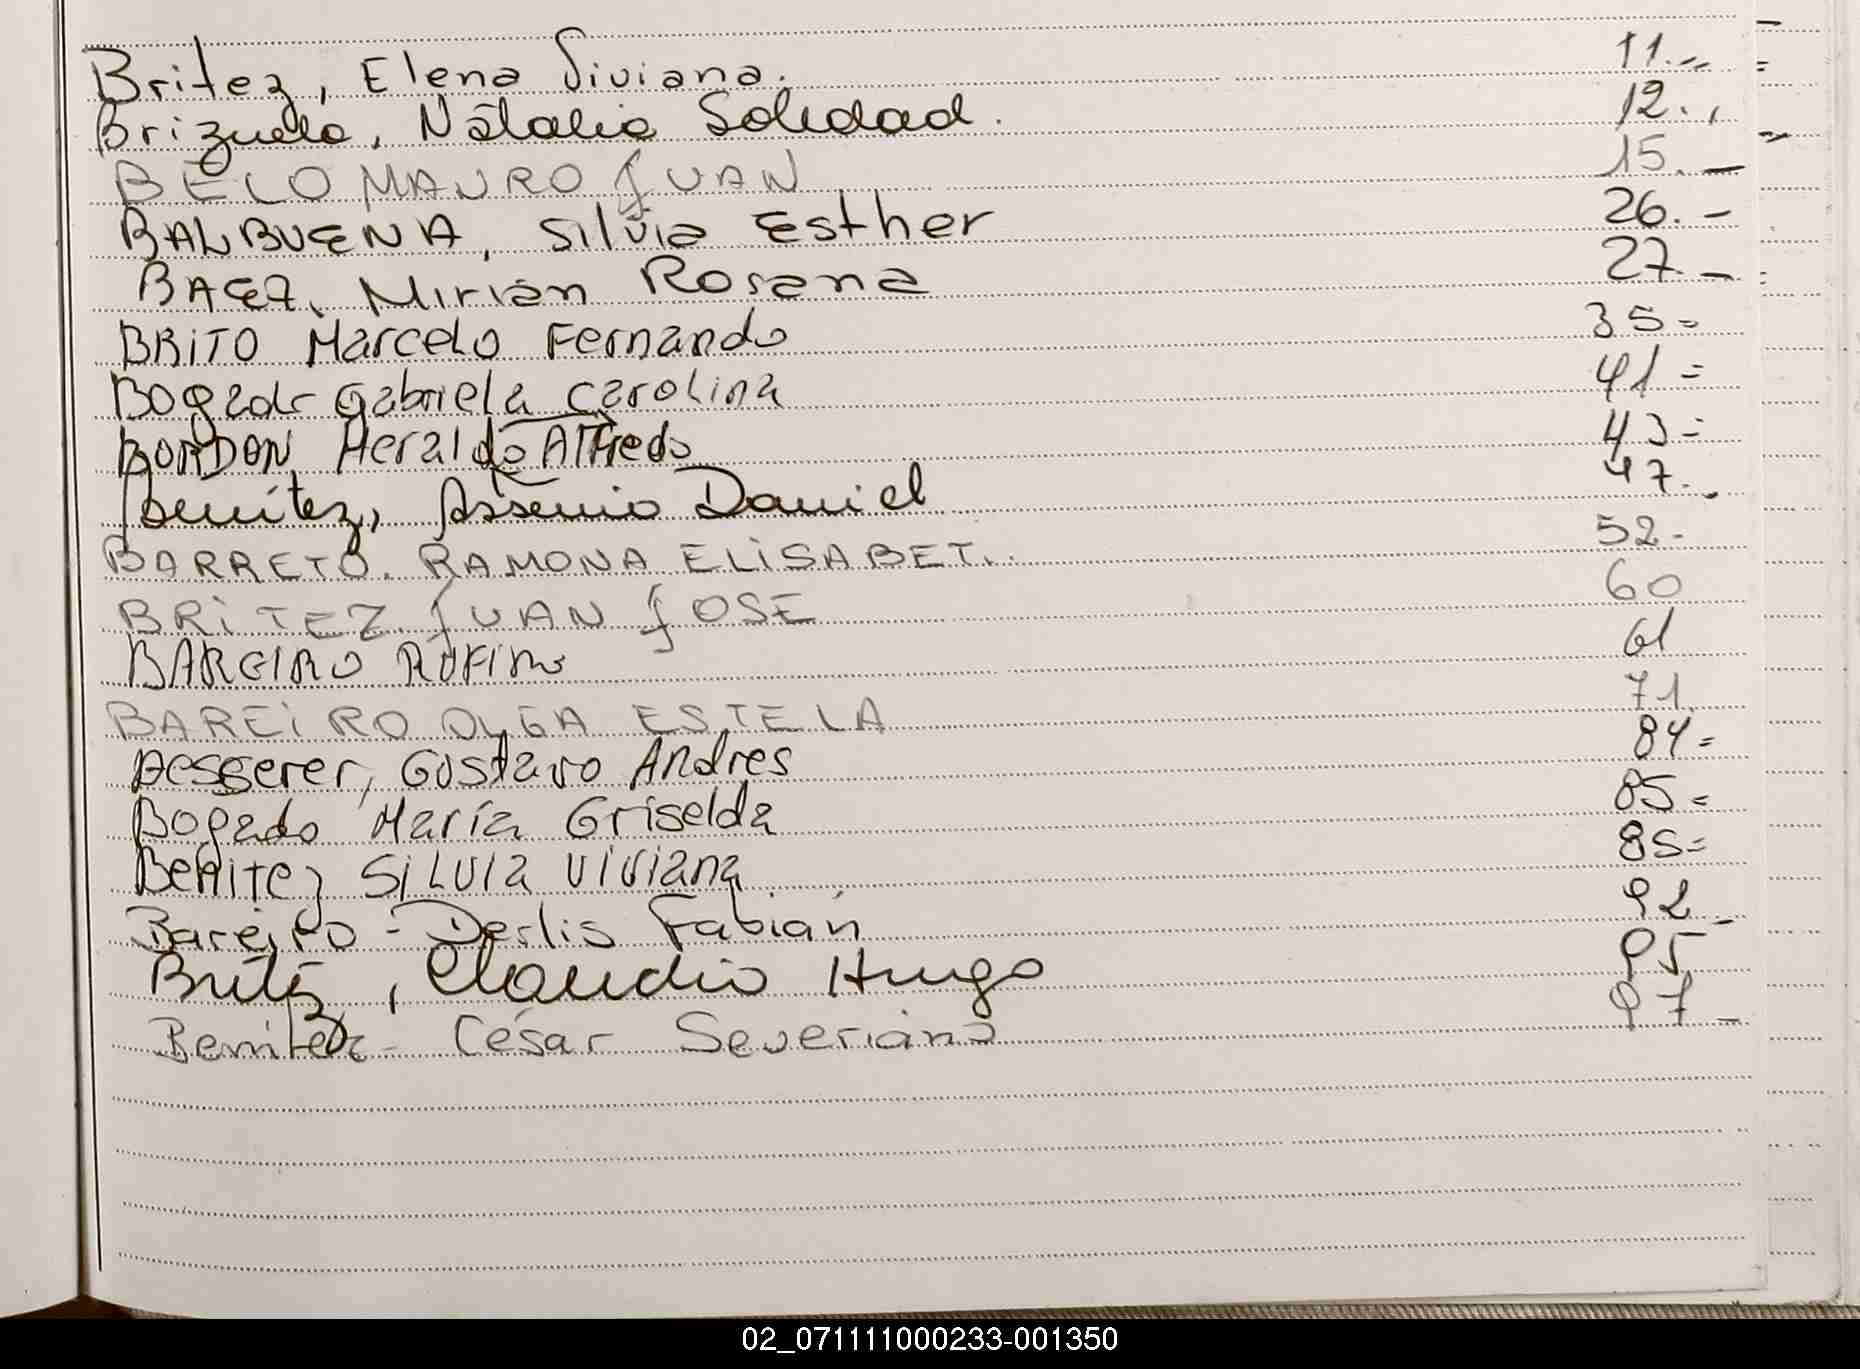 Britez, Elena Viviana. 11.--
Brizuela, Natalia Soledad. 12..,
BELO MAURO JUAN 15.-
BALBUENA, Silvia Esther 26.-
BAEZ, Mirian Rosana 27.-
BRITO Marcelo Fernando 35=
Bogado Gabriela Carolina 41=
BORDON Heraldo Alfredo 43=
Benítez, Arsenio Daniel 47.-
BARRETO. RAMONA ELISABET.. 52.-
BRITEZ. JUAN JOSE 60
BAREIRO RUFINO 61
BAREIRO OLGA ESTELA 71.
Besserer, Gustavo Andres 84=
Bogado María Griselda 85=
Benitez SILVIA Viviana 85=
Bareiro - Derlis Fabián 92-
Britez, Claudio Hugo 95
Benitez - César Severiano 97-
02_071111000233-001350